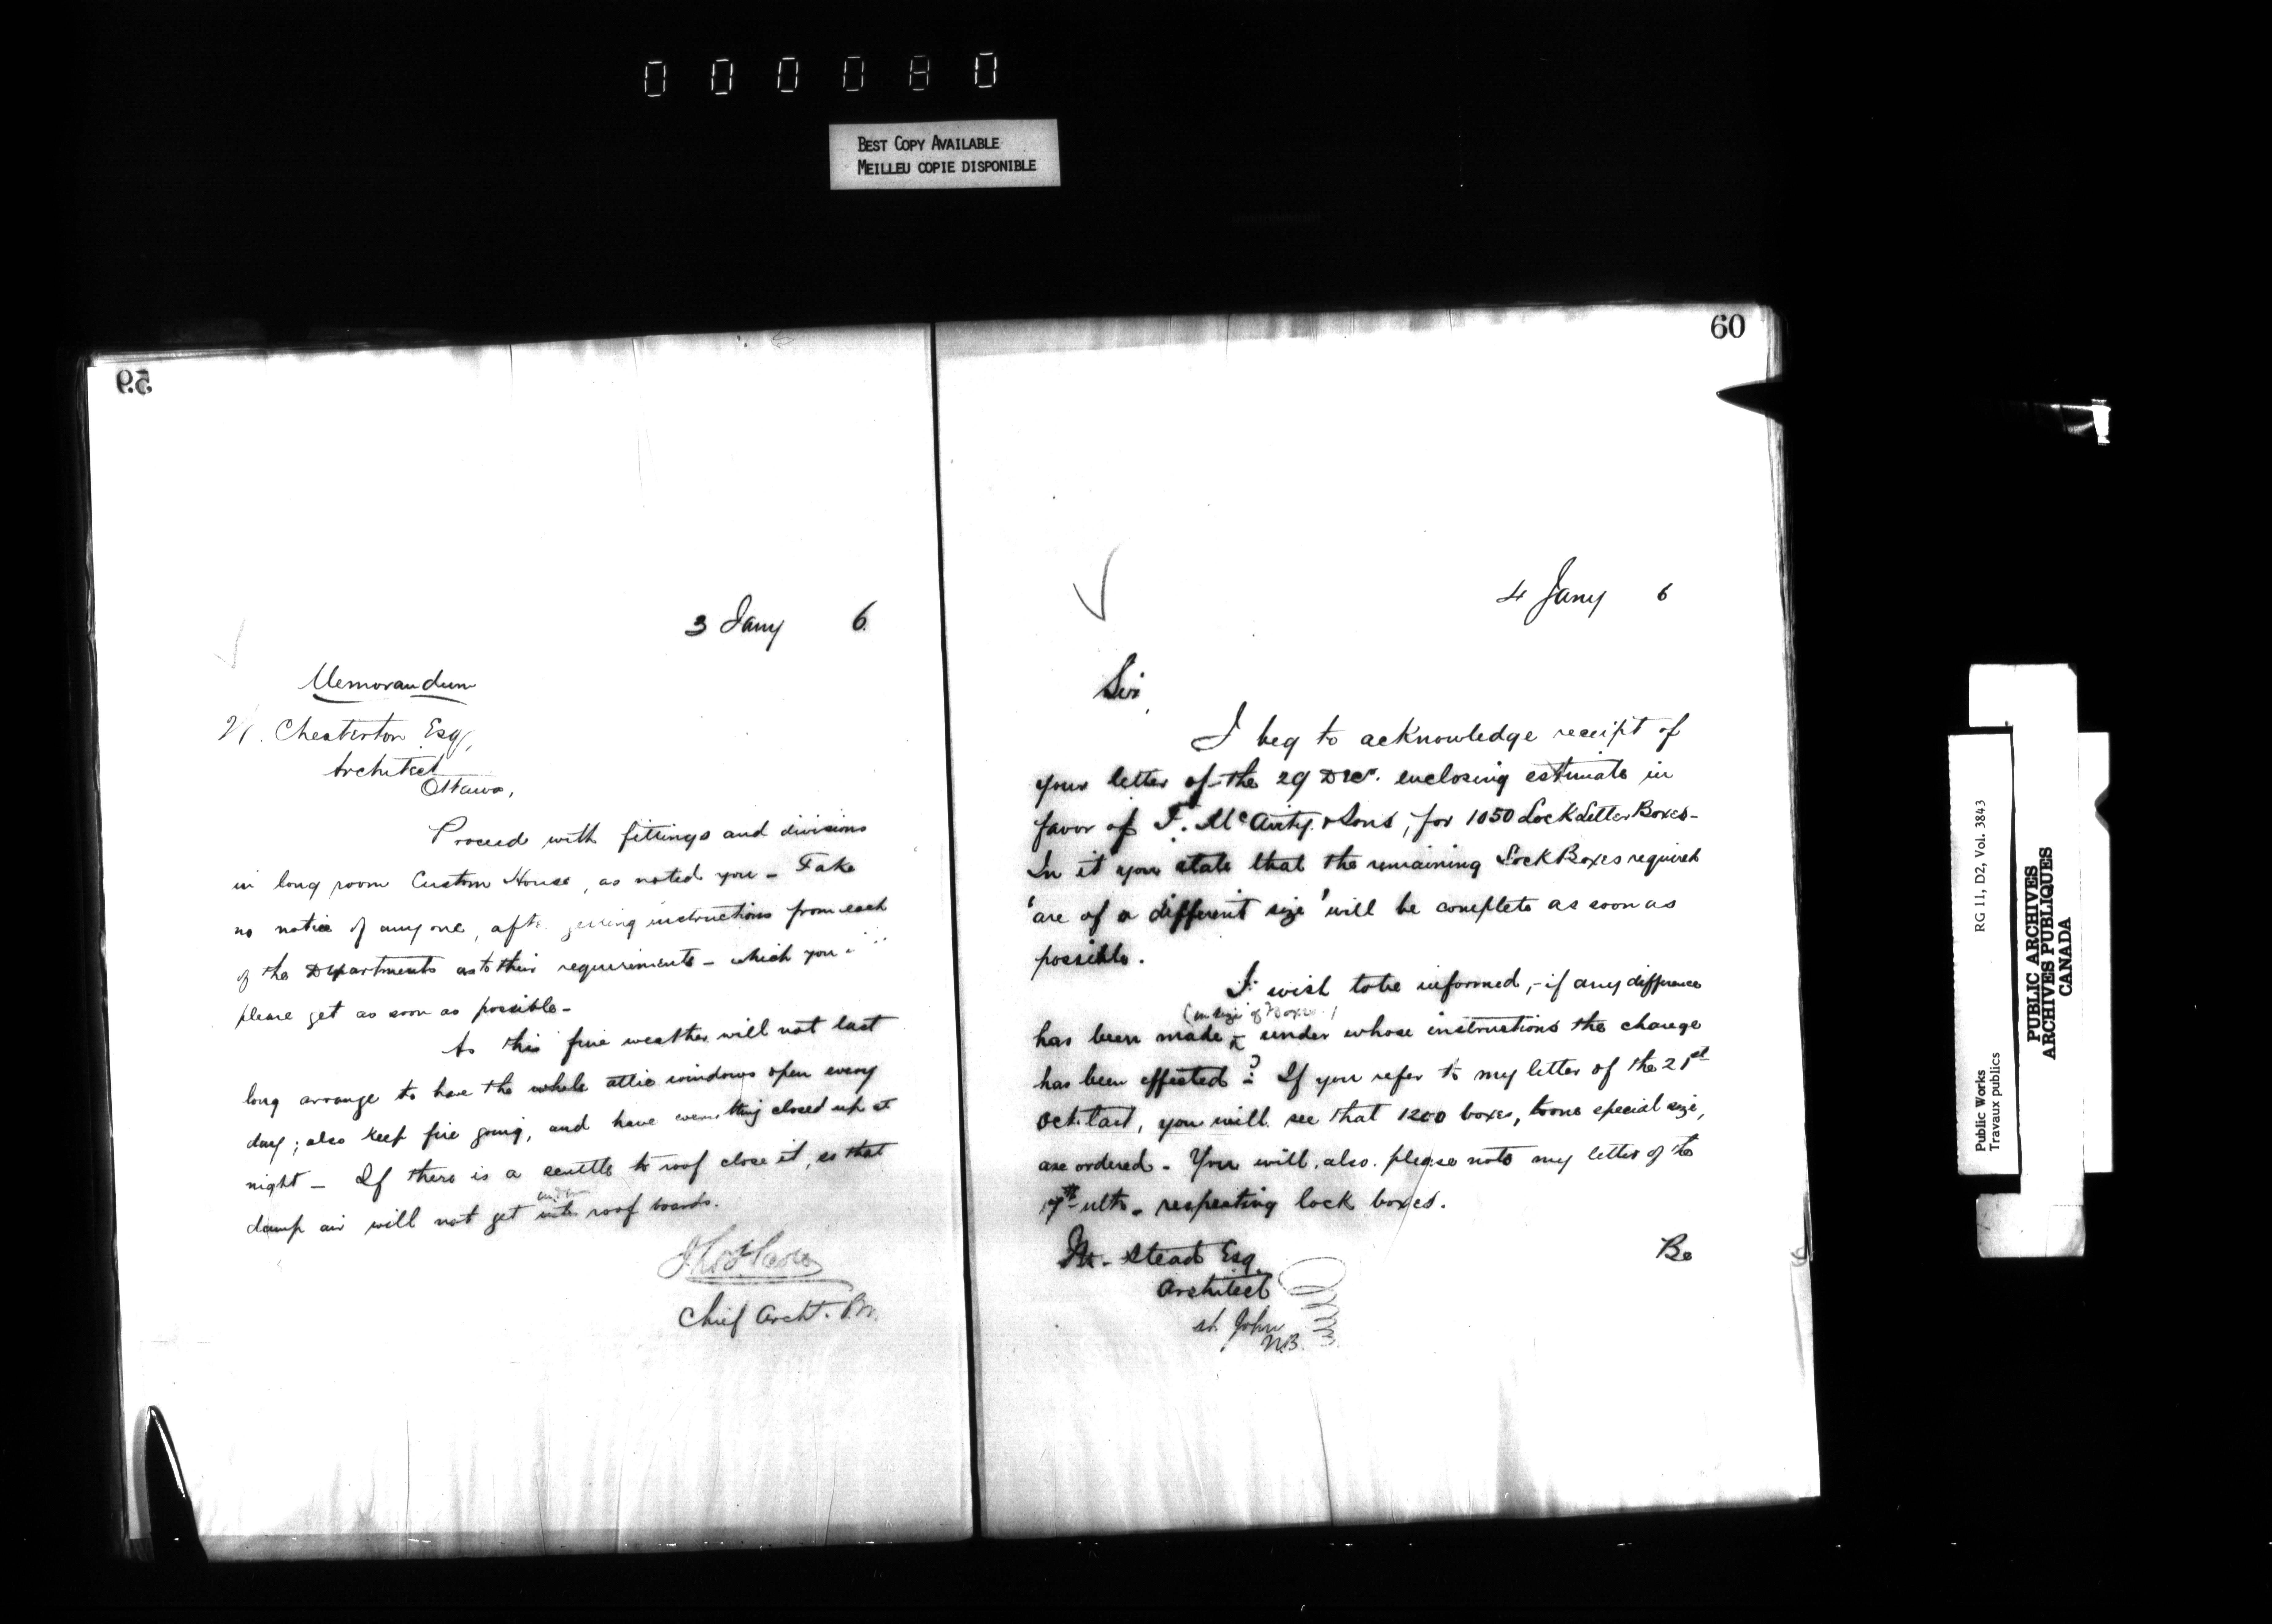 000080
BEST COPY AVAILABLE
MEILLEU COPIE DISPONIBLE
59
3 Jany 6
Memorandum
W. Chesterton Esq,
Architect
Ottawa,
Proceed with fittings and divisions
in long room Custom House, as noted you - Take
no notice of anyone, after getting instructions from each
of the Departments as to their requirements - which you
please get as soon as possible -
As this fine weather will not last
long arrange to have the whole attic windows open every
day; also keep fire going, and have everything closed up at
night - If there is a scuttle to roof close it, so that
under
damp air will not get into roof boards.
Chief Archt. P.W.
60
4 Jany 6
Sir,
I beg to acknowledge receipt of
your letter of the 29 Decr. enclosing estimate in
favor of T. McAvity & Sons, for 1050 Lock Letter Boxes -
In it you state that the remaining Lock Boxes required
'are of a different size' will be complete as soon as
possible.
I wish to be informed, - if any difference
(in size of Boxes)
has been made under whose instructions the change
has been effected? If you refer to my letter of the 21st
Oct. last, you will see that 1200 boxes, to one special size,
are ordered - You will also please note my letter of the
17th ulto. respecting lock boxes.
Be
M. Stead Esq.
Architect
St. John
N.B.
Public Works
Travaux publics
RG 11, D2, Vol. 3843
PUBLIC ARCHIVES
ARCHIVES PUBLIQUES
CANADA